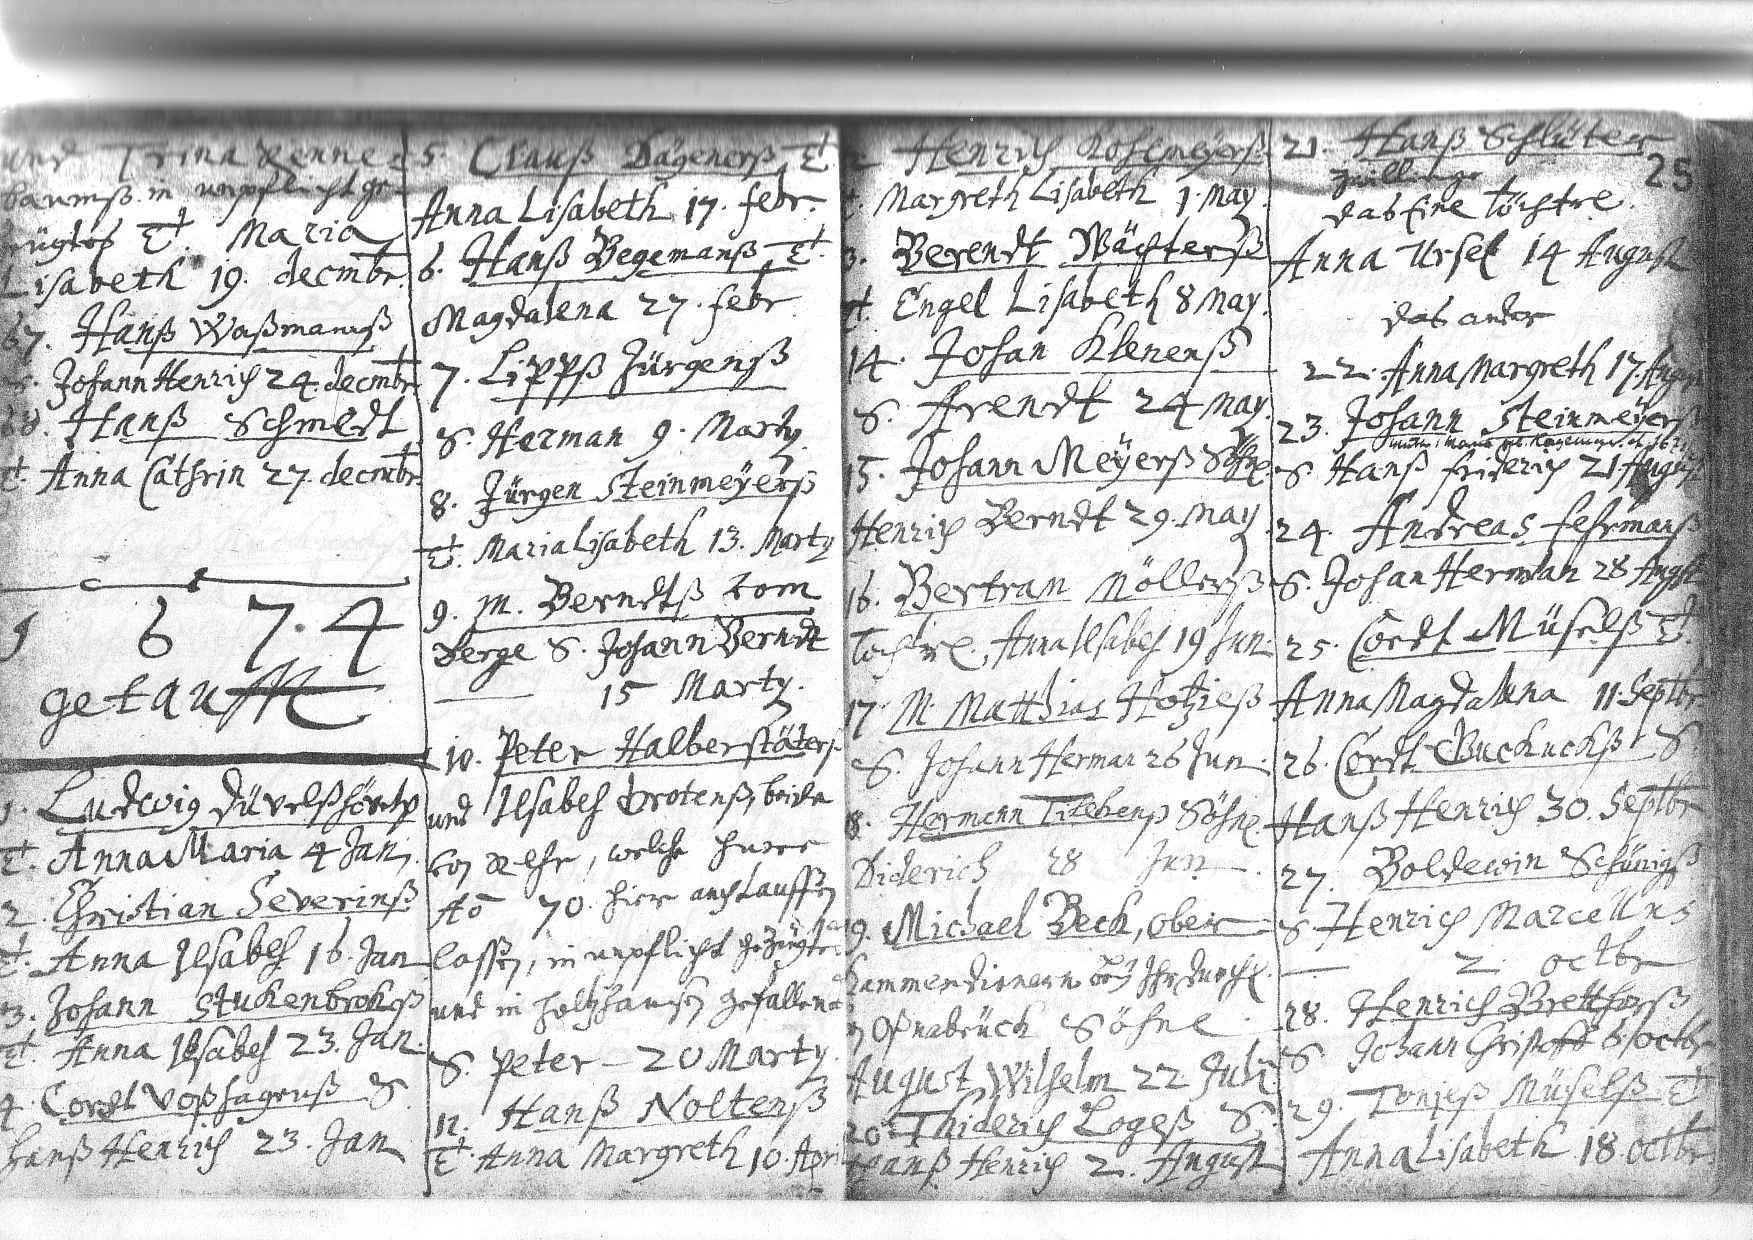 und Trina Renne-
baumß in unpflicht ge-
zeugtes T. Maria
Lisabeth 19. decmbr.
67. Hanß Waßmanß
S. Johann Henrich 24. decmbr
68. Hanß Schmedt
T. Anna Cathrin 27. decmbr.
1 6 7.4
getaufft
1. Ludwig
T. Anna Maria 4 Jan.
2. Christian Severinß
T. Anna Ilsabeh 16. Jan
3. Johann Stukenbrokß
T. Anna Ilsabeh 23. Jan.
4. Cordt Voßhagenß S.
Hanß Henrich 23. Jan
5. Clauß Dägenerß T.
Anna Lisabeth 17. febr.
6. Hanß Begemanß T.
Magdalena 27. febr
7. Lippß Jürgenß
S. Herman 9. Marty
8. Jürgen Steinmeÿerß
T. Maria Lisabeth 13. Marty
9. M. Berndtß tom
Berge S. Johann Berndt
15 Marty.
10. Peter Halberstäterß
und Ilsabeh Grotenß, beide
welche
Ao 70. hier
laßen, in unpflicht gezeugter
und in holtzhausen gefallene
S. Peter 20 Marty.
12. Hanß Noltenß
T. Anna Margreth 10. Apri
Henrich Kohlmeÿerß
T. Margreth Lisabeth 1. May.
13. Berendt Wächterß
T. Engel Lisabeth 8 May.
14. Johan Klenenß
S. Arendt 24 May.
15. Johann Meÿerß Söhnl.
Henrich Berndt 29. May
16. Bertram Möllerß
Töchtrl. Anna Ilsabeh 19 Jun.
17 M. Matthias
S. Johann Herman 26 Jun.
18. Hermann Söhnl.
Diderich 28 Jun.
19. Michael Beck, ober
Kammerdieners bey Ihr durchl.
Oßnabrück Söhnl.
August Wilhelm 22 July
20. Thiderich Logeß S.
Hanß Henrich 2. August
21. Hanß Schlüter 25
zwillinge
das Eine Töchtrl.
Anna Ursel 14 August
das ander
22. Anna Margreth 17. August
23. Johann Steinmeÿerß
S. Hanß friderich 21 August
24. Andreas fehrmanß
S. Johan Herman 28 Augst
25. Cordt Müselß T.
Anna Magdalena 11. Septbr.
26. Cordt Buckuckß S
Hanß Henrich 30. Septbr
27. Boldewin Schönigß
S Henrich Marcellus
2. octbr
28. Henrich
S Johann Christoff 6 octbr
29. Tönjeß Müselß T
Anna Lisabeth 18 octbr